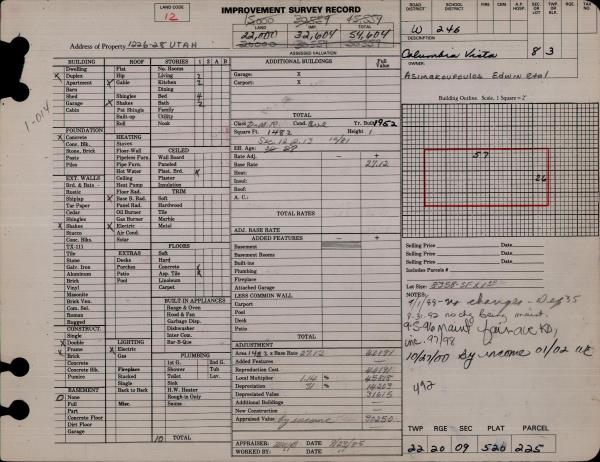 LAND CODE
12
IMPROVEMENT SURVEY RECORD
LAND
IMP.
TOTAL
22,000 32,604 54,604
ASSESSED VALUATION
Address of Property 1226-28 UTAH
ROAD DISTRICT
SCHOOL DISTRICT
FIRE
CEM
A.P. HOSP.
SEC. OR LOT
TWP OR BLK
RG.
TAX NO.
W 246
DESCRIPTION
Columbia Vista 8 3
OWNER:
Asimakopoulos Edwin etal
1-014
BUILDING
Dwelling
Duplex
Apartment
Barn
Shed
Garage
Cabin
FOUNDATION
Concrete
Conc. Blk.
Stone, Brick
Post
Piles
EXT. WALLS
Brd. & Bats
Rustic
Shiplap
Tar Paper
Cedar
Shingles
Shakes
Stucco
Conc. Blks.
TX-111
Tile
Stone
Galv. Iron
Aluminum
Brick
Vinyl
Masonite
Brick Ven.
Com. Sei.
Roman
Budged
CONSTRUCT.
Single
Double
Frame
Brick
Concrete
Concrete Blk.
Pumice
BASEMENT
None
Full
Part
Concrete Floor
Dirt Floor
Garage
ROOF
Flat
Hip
Gable
Dining
Shingles
Shakes
Pat Shingle
Built-up
Roll
HEATING
Stoves
Floor-Wall
Pipeless Furn.
Pipe Furn.
Hot Water
Ceiling
Heat Pump
Floor Rad.
Base B. Rad.
Panel Rad.
Oil Burner
Gas Burner
Electric
Air Cond.
Solar
EXTRAS
Decks
Porches
Patio
Pool
LIGHTING
Electric
Gas
Fireplace
Stacked
Single
Back to Back
Misc.
STORIES 1 2 A B
No. Rooms
Living 2
Kitchen 2
Bed 4
Bath 2
Family
Utility
Nook
CEILED
Wall Board
Paneled
Plast. Brd.
Plaster
Insulation
TRIM
Soft
Hardwd.
Tile
Marble
Metal
FLOORS
Soft
Hard
Concrete
Asp. Tile
Linoleum
Carpet
BUILT-IN APPLIANCES
Range & Oven
Hood & Fan
Garbage Disp.
Dishwasher
Inter Com.
Bar-B-Que
PLUMBING
1st G. 2nd G.
Shower Tub
Toilet Lav.
Sink
H.W. Heater
Rough-in Only
Sauna
10 TOTAL
ADDITIONAL BUILDINGS
Full Value
Garage: X
Carport: X
TOTAL
Yr. Built 1952
Square Ft. 1482 Height 1
Eff. Age:
Rate Adj.
Base Rate 27.12
Heat:
Insul:
Roof:
A. C.:
TOTAL RATES
ADJ. BASE RATE
ADDED FEATURES
Basement
Basement Rooms
Built-ins
Plumbing
Fireplace
Attached Garage
LESS COMMON WALL
Carport
Pool
Deck
Patio
TOTAL
ADJUSTMENT
Area 1482 x Base Rate 27.12 40191
Added Features
Reproduction Cost 40191
Local Multiplier 1.14 % 45818
Depreciation 31 % 14203
Depreciated Value 31615
Additional Buildings
New Construction
Appraised Value by income 30250
APPRAISER: DATE
WORKED BY: DATE
Building Outline. Scale, 1 Square = 2'
57
26
Selling Price Date
Selling Price Date
Selling Price Date
Includes Parcels #
Lot Size:
NOTES:
9/1/88 - no changes - Deg 35
8-31-92 no chg being maint.
9-5-96 maint fair
inc. 97/98
10/27/00 By income 01/02
492
TWP RGE SEC PLAT PARCEL
22 20 09 526 225